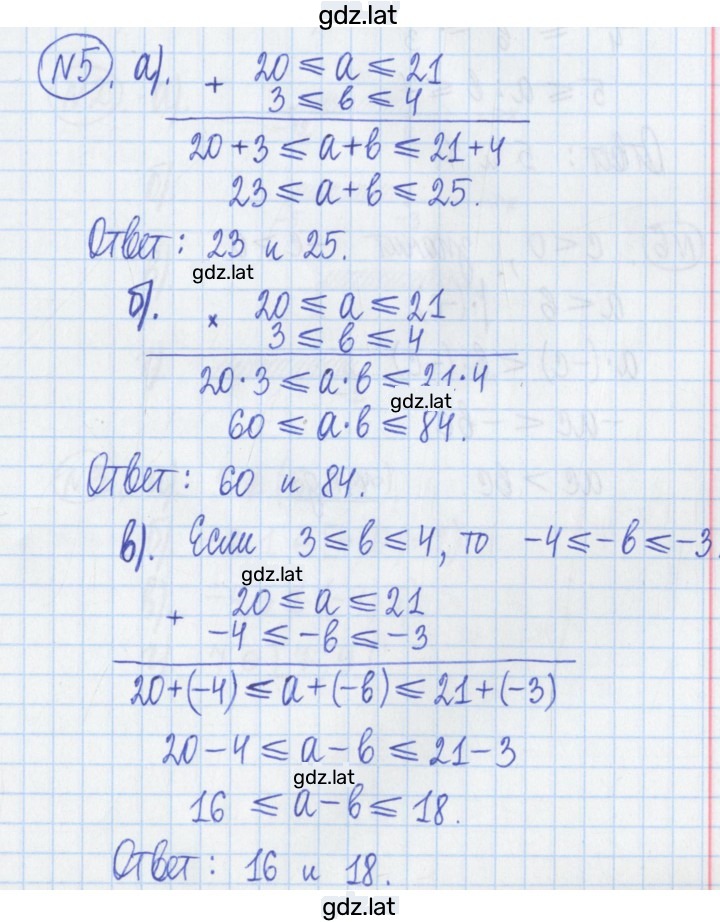 gdz.lat
№5. а). + 20 ⩽ a ⩽ 21
3 ⩽ в ⩽ 4
20+3 ⩽ a+в ⩽ 21+4
23 ⩽ a+в ⩽ 25.
Ответ: 23 и 25.
gdz.lat
б). × 20 ⩽ a ⩽ 21
3 ⩽ в ⩽ 4
20·3 ⩽ a·в ⩽ 21·4
gdz.lat
60 ⩽ a·в ⩽ 84.
Ответ: 60 и 84.
в). Если 3 ⩽ в ⩽ 4, то -4 ⩽ -в ⩽ -3.
gdz.lat
+ 20 ⩽ a ⩽ 21
-4 ⩽ -в ⩽ -3
20+(-4) ⩽ a+(-в) ⩽ 21+(-3)
20-4 ⩽ a-в ⩽ 21-3
gdz.lat
16 ⩽ a-в ⩽ 18.
Ответ: 16 и 18.
gdz.lat